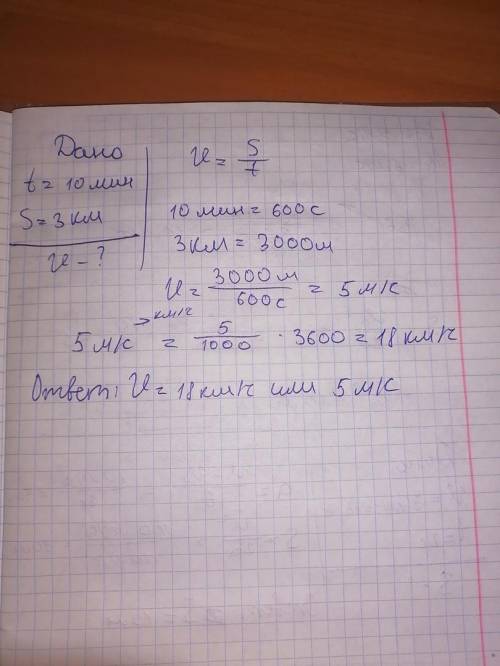 Дано
t = 10 мин
S = 3 км
V - ?
V = S/t
10 мин = 600 с
3 км = 3000 м
V = 3000 м/600 с = 5 м/с
5 м/с → км/ч = 5/1000 · 3600 = 18 км/ч
Ответ: V = 18 км/ч или 5 м/с